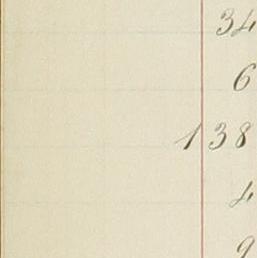 34
6
138
4
9